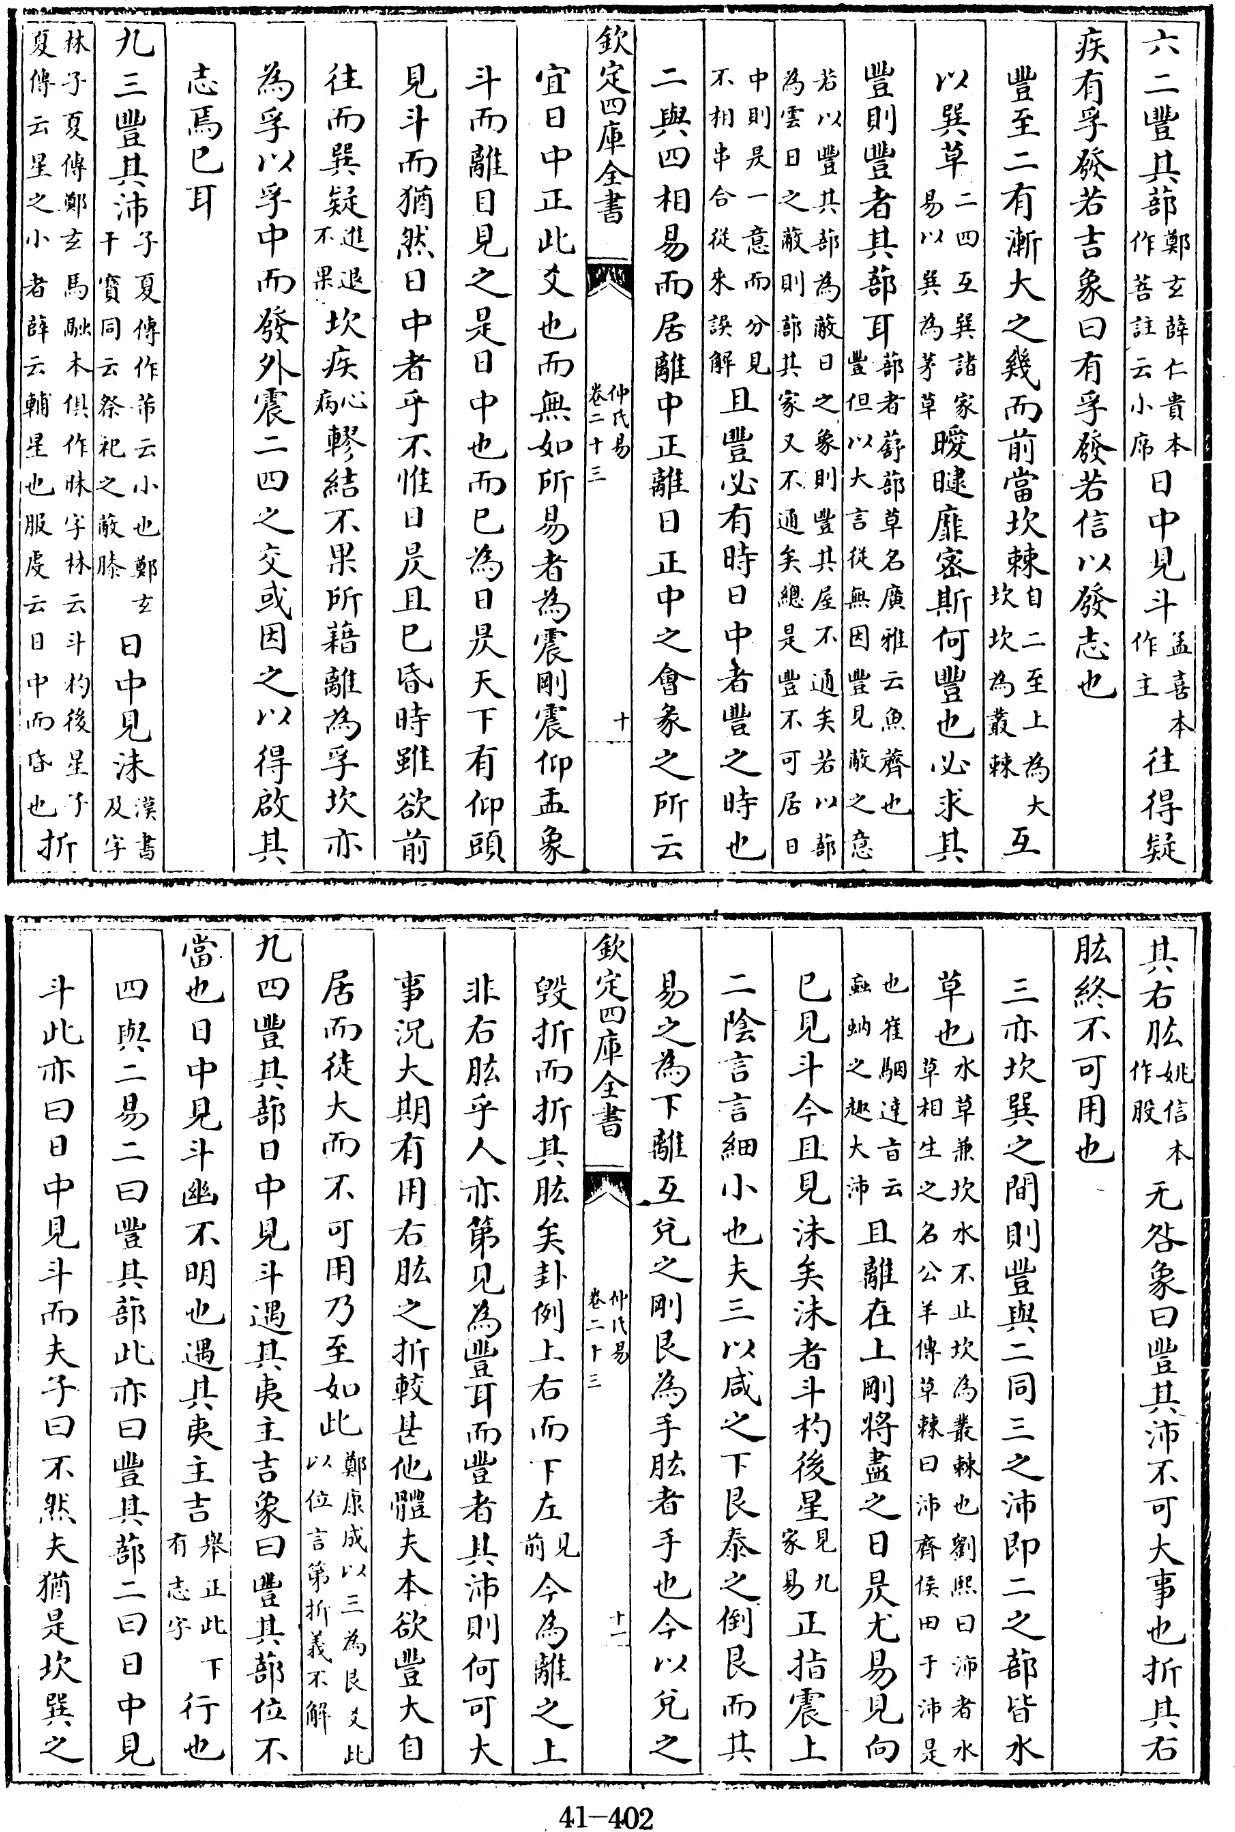 六二豐其蔀鄭玄薛仁貴本作菩註云小席日中見斗孟喜本作主往得疑
疾有孚發若吉象曰有孚發若信以發志也
豐至二有漸大之幾而前當坎棘自二至上為大坎坎為叢棘互
以巽草二四互巽諸家易以巽為茅草曖曃靡密斯何豐也必求其
豐則豐者其蔀耳蔀者蔀草名廣雅云魚薺也豐但以大言從無因豐見蔽之意
若以豐其蔀為蔽日之象則豐其屋不通矣若以蔀為雲日之蔽則蔀其家又不通矣總是豐不可居日
中則是一意而分見不相串合從來誤解且豐必有時日中者豐之時也
二與四相易而居離中正離日正中之會象之所云
欽定四庫全書
仲氏易
卷二十三
十
宜日中正此爻也而無如所易者為震剛震仰盂象
斗而離目見之是日中也而已為日昃天下有仰頭
見斗而猶然日中者乎不惟日昃且已昏時雖欲前
往而巽疑進退不果坎疾心病轇結不果所藉離為孚坎亦
為孚以孚中而發外震二四之交或因之以得啟其
志焉已耳
九三豐其沛子夏傳作芾云小也鄭玄干寶同云祭祀之蔽膝日中見沬漢書及字
林子夏傳鄭玄馬融本俱作昧字林云斗杓後星子夏傳云星之小者薛云輔星也服虔云日中而昏也折
其右肱姚信本作股无咎象曰豐其沛不可大事也折其右
肱終不可用也
三亦坎巽之間則豐與二同三之沛即二之蔀皆水
草也水草兼坎水不止坎為叢棘也劉熙曰沛者水草相生之名公羊傳草棘曰沛齊侯田于沛是
也崔駰達旨云蝱蚋之趣大沛且離在上剛將盡之日昃尤易見向
已見斗今且見沬矣沬者斗杓後星見九家易正指震上
二陰言言細小也夫三以咸之下艮泰之倒艮而其
易之為下離互兌之剛艮為手肱者手也今以兌之
欽定四庫全書
仲氏易
卷二十三
十一
毀折而折其肱矣卦例上右而下左見前今為離之上
非右肱乎人亦第見為豐耳而豐者其沛則何可大
事況大期有用右肱之折較甚他體夫本欲豐大自
居而徒大而不可用乃至如此鄭康成以三為艮爻此以位言第折義不解
九四豐其蔀日中見斗遇其夷主吉象曰豐其蔀位不
當也日中見斗幽不明也遇其夷主吉舉正此下有志字行也
四與二易二曰豐其蔀此亦曰豐其蔀二曰日中見
斗此亦曰日中見斗而夫子曰不然夫猶是坎巽之
41-402